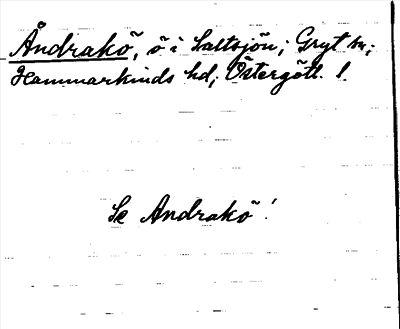 Åndrakö, ö i Saltsjön; Gryt sn;
Hammarkinds hd; Östergötl. l.
Se Andrakö!